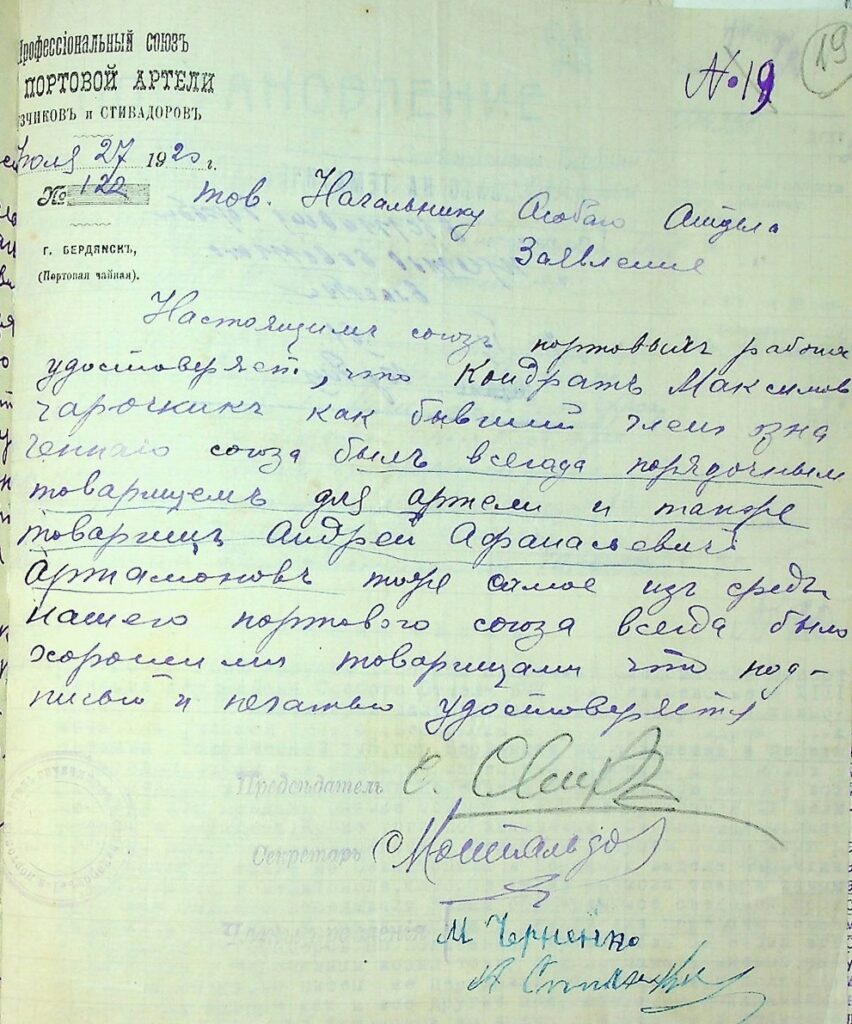 Профессіональный союзъ
ПОРТОВОЙ АРТЕЛИ
зчиковъ и стивадоровъ
№19
19
Июля 27 1920 г.
№ 122
г. БЕРДЯНСК,
(Портовая чайная).
тов. Начальнику Особаго Отдела
Заявление
Настоящимъ союзъ портовыхъ рабочих
удостоверяет, что Кондратъ Максимов
Чарочкинъ как бывший член озна
ченнаго союза былъ всегда порядочным
товарищемъ для артели и также
товарищъ Андрей Афанасьевичъ
Артамоновъ тоже самое изъ среды
нашего портового союза всегда было
хорошими товарищами что под-
писью и печатью удостоверяется
Предсѣдатель С.
Секретарь
М Черненко